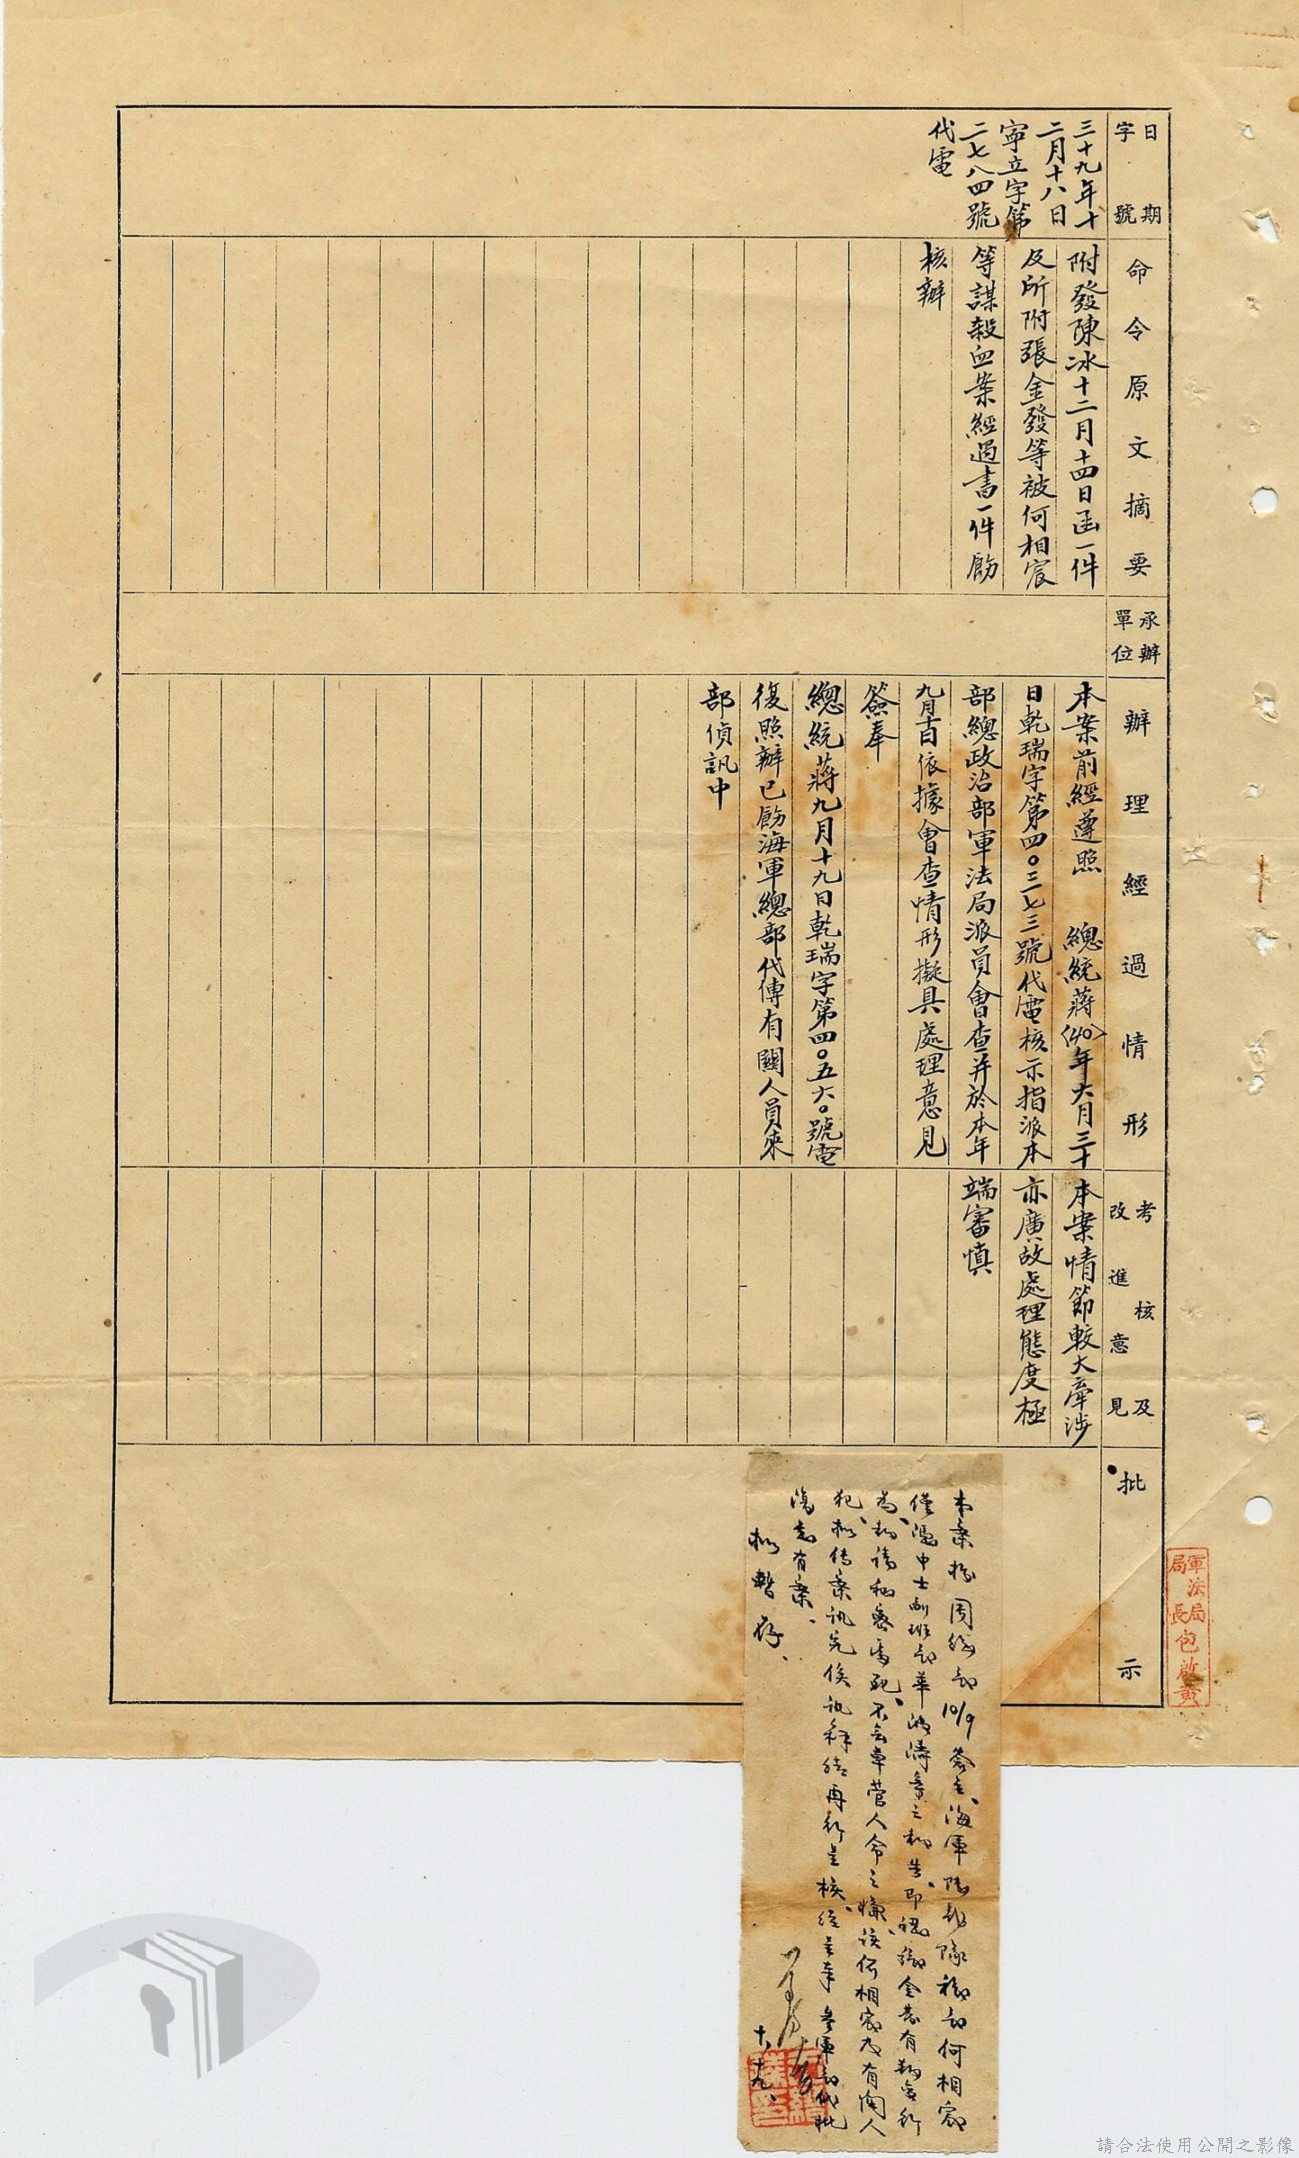 日期
字號
三十九年十
二月十八日
寧立字第
二七八四號
代電
命令原文摘要
附發陳冰十二月十四日函一件
及所附張金發等被何相宸
等謀殺血案經過書一件飭
核辦
承辦
單位
辦理經過情形
本案前經遵照 總統蔣(40)年六月三十
日乾瑞字第四〇三七三號代電核示指派本
部總政治部軍法局派員會查并於本年
九月十日依據會查情形擬具處理意見
簽奉
總統蔣九月十九日乾瑞字第四〇五六〇號電
復照辦已飭海軍總部代傳有關人員來
部偵訊中
考核及
改進意見
本案情節較大牽涉
亦廣故處理態度極
端審慎
批示
本案據周總 10/9 簽呈、海軍陸戰隊 何相宸
僅憑中士副班 等之 告、即認 金發有 行
為、 不無草菅人命之嫌、該何相宸及有關人
犯、擬傳案訊究俟訊 後再行呈核、經呈奉 參軍 代批
復 有案、
擬暫存、
十、十九、
軍法局
局長包啟黃
請合法使用公開之影像